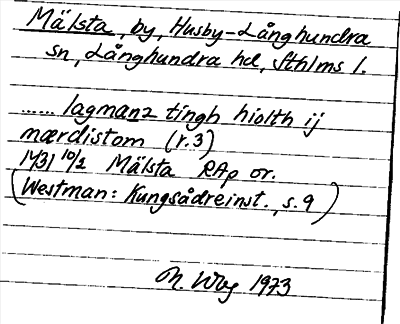 Mälsta, by, Husby-Långhundra
sn, Långhundra hd, Sthlms l.
...... lagmanz tingh hiolth ij
mærdistom (r. 3)
1431 10/2 Mälsta RAp or.
(Westman: Kungsådreinst., s. 9)
M. 1973